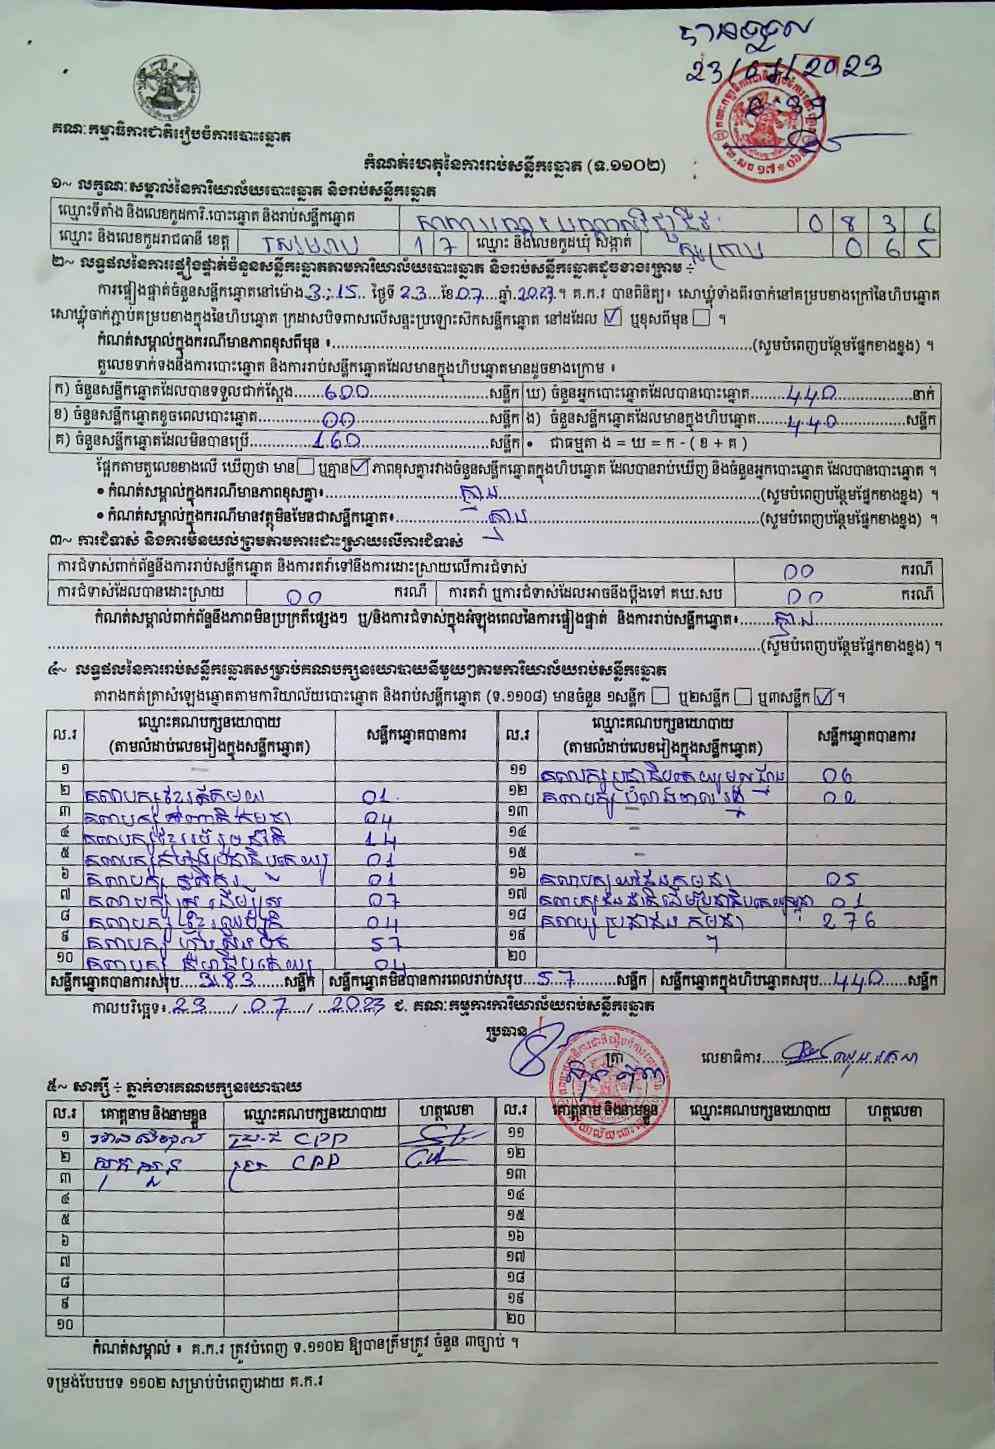 បានទទួល
23/07/2023
គណៈកម្មាធិការជាតិរៀបចំការបោះឆ្នោត
កំណត់ហេតុនៃការរាប់សន្លឹកឆ្នោត (ទ.១១០២)
១~ លក្ខណៈសម្គាល់នៃការិយាល័យបោះឆ្នោត និងរាប់សន្លឹកឆ្នោត
ឈ្មោះទីតាំង និងលេខកូដការិ.បោះឆ្នោត និងរាប់សន្លឹកឆ្នោត 0 8 3 6
ឈ្មោះ និងលេខកូដរាជធានី ខេត្ត សៀមរាប 1 7 ឈ្មោះ និងលេខកូដឃុំ សង្កាត់ 0 6 5
២~ លទ្ធផលនៃការផ្ទៀងផ្ទាត់ចំនួនសន្លឹកឆ្នោតតាមការិយាល័យបោះឆ្នោត និងរាប់សន្លឹកឆ្នោតដូចខាងក្រោម ÷
ការផ្ទៀងផ្ទាត់ចំនួនសន្លឹកឆ្នោតនៅម៉ោង 3:15 ថ្ងៃទី 23 ខែ 07 ឆ្នាំ 2023 ។ គ.ក.រ បានពិនិត្យ៖ សោឃ្លុំទាំងពីរចាក់នៅគម្របខាងក្រៅនៃហិបឆ្នោត
សោឃ្លុំចាក់ភ្ជាប់គម្របខាងក្នុងនៃហិបឆ្នោត ក្រដាសបិទពាសលើសន្ទះប្រឡោះសឹកសន្លឹកឆ្នោត នៅដដែល ☑ ឬខុសពីមុន ☐ ។
កំណត់សម្គាល់ក្នុងករណីមានភាពខុសពីមុន ៖ (សូមបំពេញបន្ថែមផ្នែកខាងខ្នង) ។
តួលេខទាក់ទងនឹងការបោះឆ្នោត និងការរាប់សន្លឹកឆ្នោតដែលមានក្នុងហិបឆ្នោតមានដូចខាងក្រោម ៖
ក) ចំនួនសន្លឹកឆ្នោតដែលបានទទួលជាក់ស្ដែង 600 សន្លឹក ឃ) ចំនួនអ្នកបោះឆ្នោតដែលបានបោះឆ្នោត 440 នាក់
ខ) ចំនួនសន្លឹកឆ្នោតខូចពេលបោះឆ្នោត 00 សន្លឹក ង) ចំនួនសន្លឹកឆ្នោតដែលមានក្នុងហិបឆ្នោត 440 សន្លឹក
គ) ចំនួនសន្លឹកឆ្នោតដែលមិនបានប្រើ 160 សន្លឹក • ជាធម្មតា ង = ឃ = ក - ( ខ + គ )
ផ្អែកតាមតួលេខខាងលើ ឃើញថា មាន ☐ ឬគ្មាន ☑ ភាពខុសគ្នារវាងចំនួនសន្លឹកឆ្នោតក្នុងហិបឆ្នោត ដែលបានរាប់ឃើញ និងចំនួនអ្នកបោះឆ្នោត ដែលបានបោះឆ្នោត ។
• កំណត់សម្គាល់ក្នុងករណីមានភាពខុសគ្នា៖ គ្មាន (សូមបំពេញបន្ថែមផ្នែកខាងខ្នង) ។
• កំណត់សម្គាល់ក្នុងករណីមានវត្ថុមិនមែនជាសន្លឹកឆ្នោត៖ គ្មាន (សូមបំពេញបន្ថែមផ្នែកខាងខ្នង) ។
៣~ ការជំទាស់ និងការមិនយល់ព្រមតាមការដោះស្រាយលើការជំទាស់
ការជំទាស់ពាក់ព័ន្ធនឹងការរាប់សន្លឹកឆ្នោត និងការតវ៉ាទៅនឹងការដោះស្រាយលើការជំទាស់ 00 ករណី
ការជំទាស់ដែលបានដោះស្រាយ 00 ករណី ការតវ៉ា ឬការជំទាស់ដែលអាចនឹងប្ដឹងទៅ គឃ.សប 00 ករណី
កំណត់សម្គាល់ពាក់ព័ន្ធនឹងភាពមិនប្រក្រតីផ្សេងៗ ឬ/និងការជំទាស់ក្នុងអំឡុងពេលនៃការផ្ទៀងផ្ទាត់ និងការរាប់សន្លឹកឆ្នោត៖ គ្មាន
(សូមបំពេញបន្ថែមផ្នែកខាងខ្នង) ។
៤~ លទ្ធផលនៃការរាប់សន្លឹកឆ្នោតសម្រាប់គណបក្សនយោបាយនីមួយៗតាមការិយាល័យរាប់សន្លឹកឆ្នោត
តារាងកត់ត្រាសំឡេងឆ្នោតតាមការិយាល័យបោះឆ្នោត និងរាប់សន្លឹកឆ្នោត (ទ.១១០៨) មានចំនួន ១សន្លឹក ☐ ឬ២សន្លឹក ☐ ឬ៣សន្លឹក ☑ ។
ល.រ ឈ្មោះគណបក្សនយោបាយ (តាមលំដាប់លេខរៀងក្នុងសន្លឹកឆ្នោត) សន្លឹកឆ្នោតបានការ ល.រ ឈ្មោះគណបក្សនយោបាយ (តាមលំដាប់លេខរៀងក្នុងសន្លឹកឆ្នោត) សន្លឹកឆ្នោតបានការ
១ – ១១ គណបក្សប្រជាធិបតេយ្យមូលដ្ឋាន 06
២ គណបក្សខ្មែរតែមួយ 01 ១២ គណបក្ស 02
៣ គណបក្ស កម្ពុជា 04 ១៣ –
៤ គណបក្សខ្មែររួបរួមជាតិ 14 ១៤ –
៥ គណបក្ស ប្រជាធិបតេយ្យ 01 ១៥ –
៦ គណបក្ស 01 ១៦ គណបក្សយុវជនកម្ពុជា 05
៧ គណបក្ស 07 ១៧ គណបក្ស 01
៨ គណបក្ស ខ្មែរ 04 ១៨ គណបក្ស ប្រជាជន កម្ពុជា 276
៩ គណបក្ស ហ្វ៊ុនស៊ិនប៉ិច 57 ១៩
១០ គណបក្ស 04 ២០
សន្លឹកឆ្នោតបានការសរុប 383 សន្លឹក សន្លឹកឆ្នោតមិនបានការពេលរាប់សរុប 57 សន្លឹក សន្លឹកឆ្នោតក្នុងហិបឆ្នោតសរុប 440 សន្លឹក
កាលបរិច្ឆេទ៖ 23 / 07 / 2023 ជ. គណៈកម្មការការិយាល័យរាប់សន្លឹកឆ្នោត
ប្រធាន ត្រា លេខាធិការ
៥~ សាក្សី ÷ ភ្នាក់ងារគណបក្សនយោបាយ
ល.រ គោត្តនាម និងនាមខ្លួន ឈ្មោះគណបក្សនយោបាយ ហត្ថលេខា ល.រ គោត្តនាម និងនាមខ្លួន ឈ្មោះគណបក្សនយោបាយ ហត្ថលេខា
១ CPP ១១
២ CPP ១២
៣ ១៣
៤ ១៤
៥ ១៥
៦ ១៦
៧ ១៧
៨ ១៨
៩ ១៩
១០ ២០
កំណត់សម្គាល់ ៖ គ.ក.រ ត្រូវបំពេញ ទ.១១០២ ឱ្យបានត្រឹមត្រូវ ចំនួន ៣ច្បាប់ ។
ទម្រង់បែបបទ ១១០២ សម្រាប់បំពេញដោយ គ.ក.រ